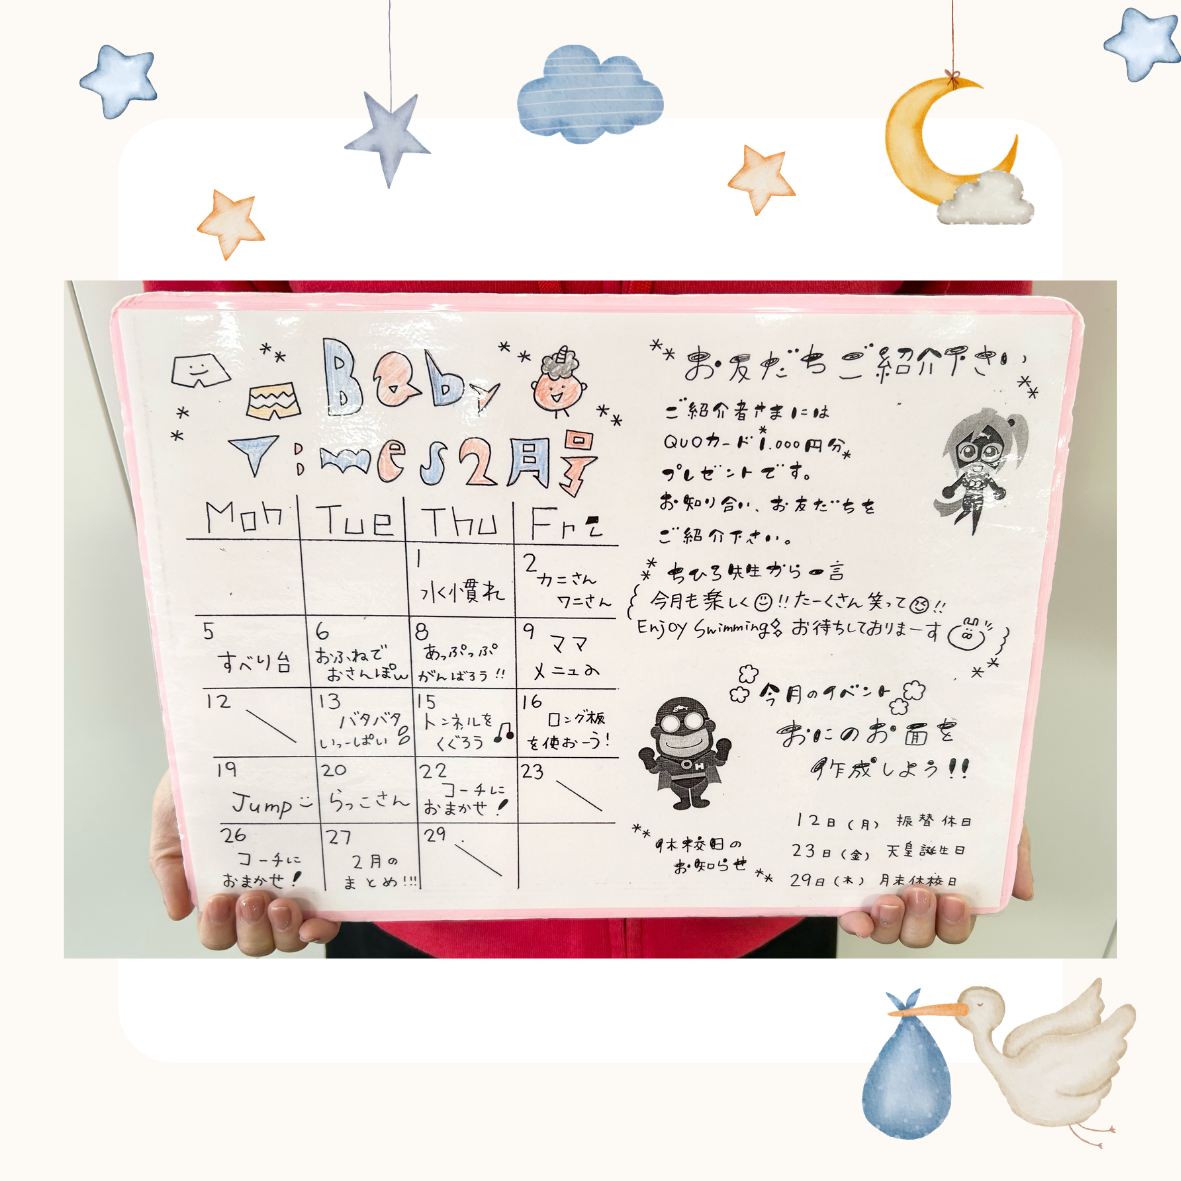 Baby
Times2月号
Mon Tue Thu Fri
1 水慣れ
2 カニさん
ワニさん
5 すべり台
6 おふねで
おさんぽ
8 あっぷっぷ
がんばろう!!
9 ママ
メニュー
12
13 バタバタ
いっぱい
15 トンネルを
くぐろう♪
16 ロング板
を使おーう!
19 Jump
20 らっこさん
22 コーチに
おまかせ!
23
26 コーチに
おまかせ!
27 2月の
まとめ!!!
29
お友だちご紹介下さい
ご紹介者さまには
QUOカード1.000円分
プレゼントです。
お知り合い、お友だちを
ご紹介下さい。
ちひろ先生から一言
今月も楽しく!!たーくさん笑って!!
Enjoy Swimming お待ちしておりまーす
今月のイベント
おにのお面を
作成しよう!!
休校日の
お知らせ
12日(月) 振替休日
23日(金) 天皇誕生日
29日(木) 月末休校日
OH